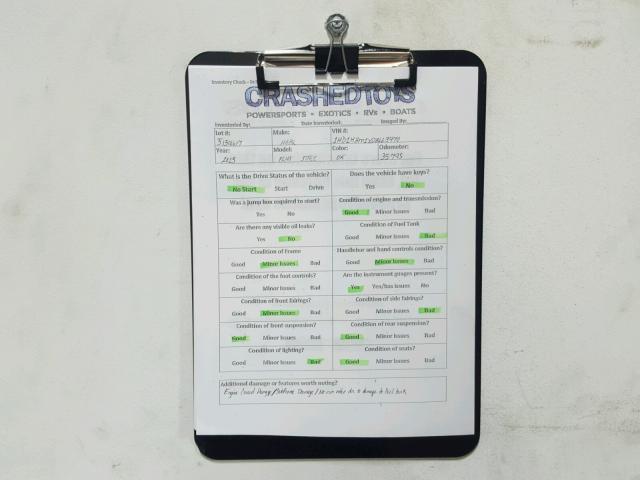 CRASHEDTOYS
POWERSPORTS • EXOTICS • RVs • BOATS
Inventoried By: Date Inventoried: Imaged By:
Lot #: Make: VIN #:
Year: Model: Color: Odometer:
What is the Drive Status of the vehicle? Does the vehicle have keys?
No Start Start Drive Yes No
Was a jump box required to start? Condition of engine and transmission?
Yes No Good Minor Issues Bad
Are there any visible oil leaks? Condition of Fuel Tank
Yes No Good Minor Issues Bad
Condition of Frame Handlebar and hand controls condition?
Good Minor Issues Bad Good Minor Issues Bad
Condition of the foot controls? Are the instrument gauges present?
Good Minor Issues Bad Yes Yes/has issues No
Condition of front fairings? Condition of side fairings?
Good Minor Issues Bad Good Minor Issues Bad
Condition of front suspension? Condition of rear suspension?
Good Minor Issues Bad Good Minor Issues Bad
Condition of lighting? Condition of seats?
Good Minor Issues Bad Good Minor Issues Bad
Additional damage or features worth noting?
Engine Damage to